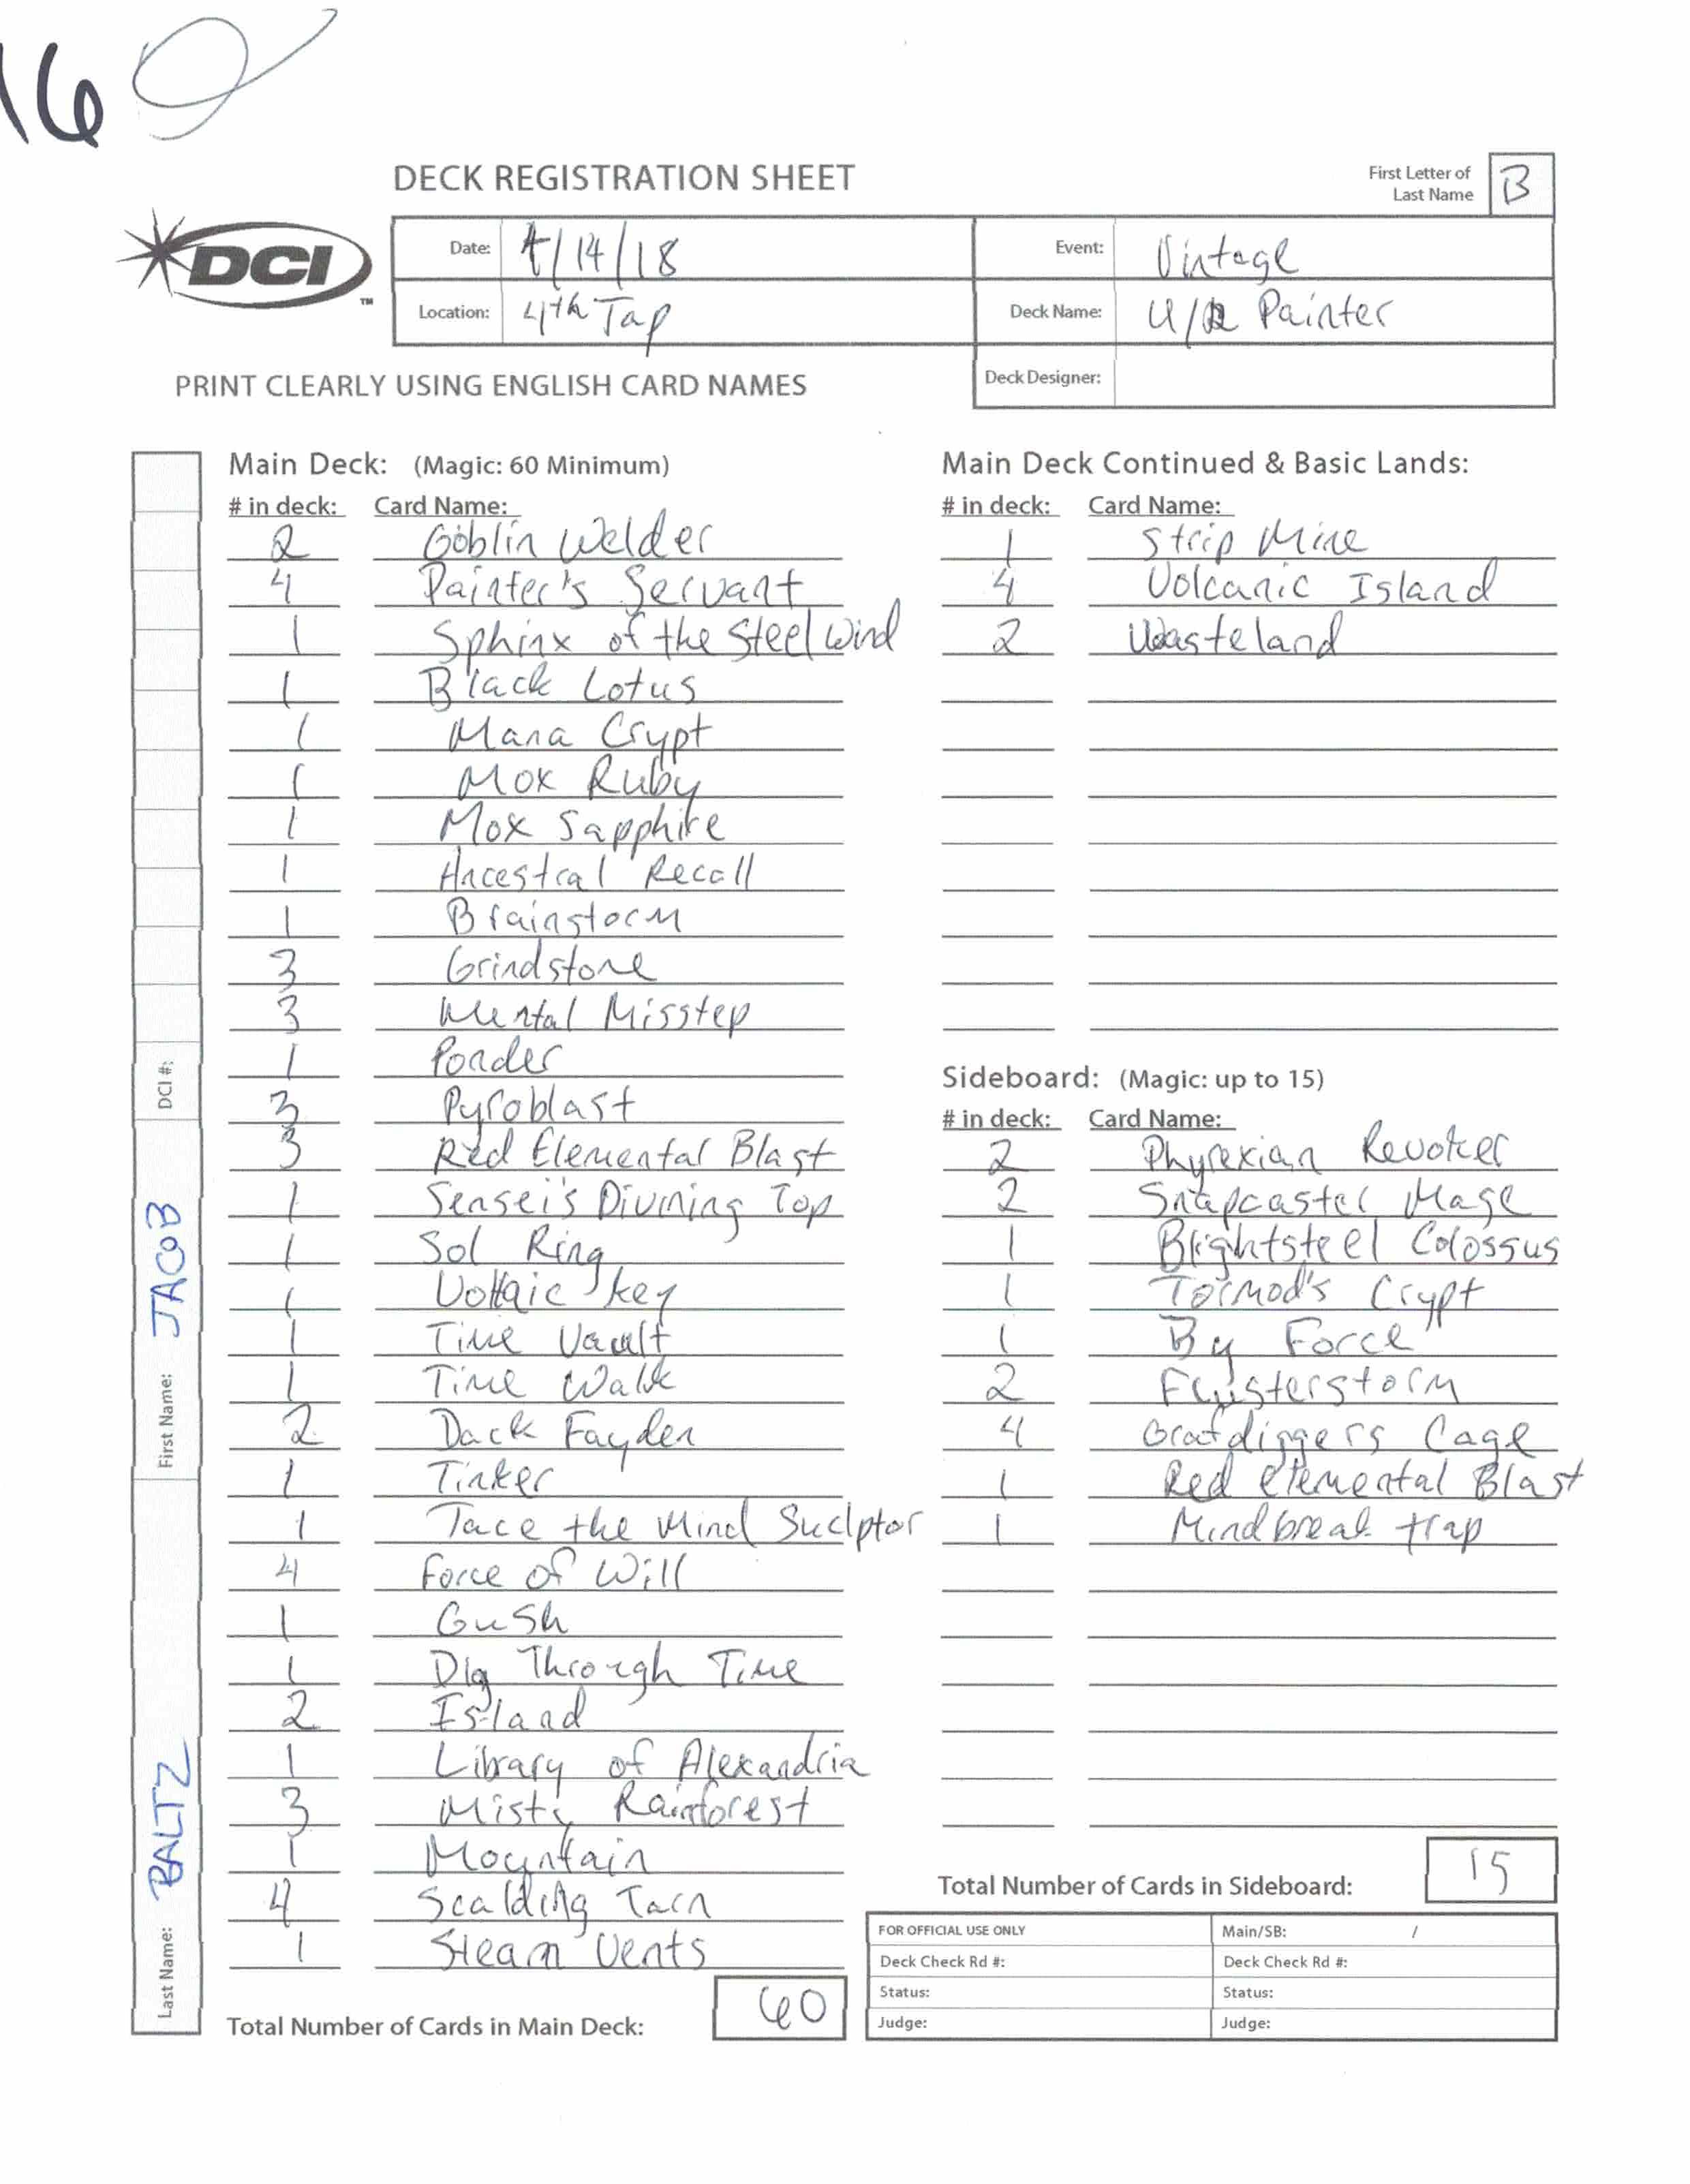 16
DECK REGISTRATION SHEET
First Letter of
Last Name
B
DCI
TM
Date: 4/14/18
Event: Vintage
Location: 4th Tap
Deck Name: U/R Painter
PRINT CLEARLY USING ENGLISH CARD NAMES
Deck Designer:
Main Deck: (Magic: 60 Minimum)
# in deck: Card Name:
2 Goblin Welder
4 Painter's Servant
1 Sphinx of the Steel Wind
1 Black Lotus
1 Mana Crypt
1 Mox Ruby
1 Mox Sapphire
1 Ancestral Recall
1 Brainstorm
3 Grindstone
3 Mental Misstep
1 Ponder
3 Pyroblast
3 Red Elemental Blast
1 Sensei's Divining Top
1 Sol Ring
1 Voltaic Key
1 Time Vault
1 Time Walk
2 Dack Fayden
1 Tinker
1 Jace the Mind Suclptor
4 Force of Will
1 Gush
1 Dig Through Time
2 Island
1 Library of Alexandria
3 Misty Rainforest
1 Mountain
4 Scalding Tarn
1 Steam Vents
Total Number of Cards in Main Deck: 60
Main Deck Continued & Basic Lands:
# in deck: Card Name:
1 Strip Mine
4 Volcanic Island
2 Wasteland
Sideboard: (Magic: up to 15)
# in deck: Card Name:
2 Phyrexian Revoker
2 Snapcaster Mage
1 Blightsteel Colossus
1 Tormod's Crypt
1 By Force
2 Flusterstorm
4 Grafdiggers Cage
1 Red elemental Blast
1 Mindbreak trap
Total Number of Cards in Sideboard: 15
FOR OFFICIAL USE ONLY
Main/SB: /
Deck Check Rd #:
Deck Check Rd #:
Status:
Status:
Judge:
Judge:
DCI #:
First Name: JACOB
Last Name: BALTZ